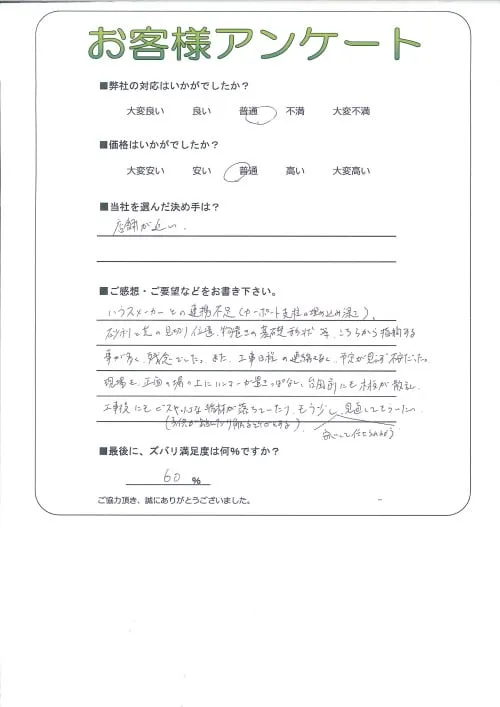 お客様アンケート
■弊社の対応はいかがでしたか？
大変良い 良い 普通 不満 大変不満
■価格はいかがでしたか？
大変安い 安い 普通 高い 大変高い
■当社を選んだ決め手は？
店舗が近い.
■ご感想・ご要望などをお書き下さい。
ハウスメーカーとの連携不足(カーポート支柱の埋め込み深さ)、
砂利と芝の見切り位置、物置きの基礎形状 等、こちらから指摘する
事が多く、残念でした。また、工事日程の連絡もなく、予定が見えず不安だった。
現場も、正面の塀の上にハンマーが置きっぱなし、台風前にも木板が散乱し、
工事後にもビスや 端材が落ちていたり、もう少し見直してもらいたい。
■最後に、ズバリ満足度は何％ですか？
60 %
ご協力頂き、誠にありがとうございました。